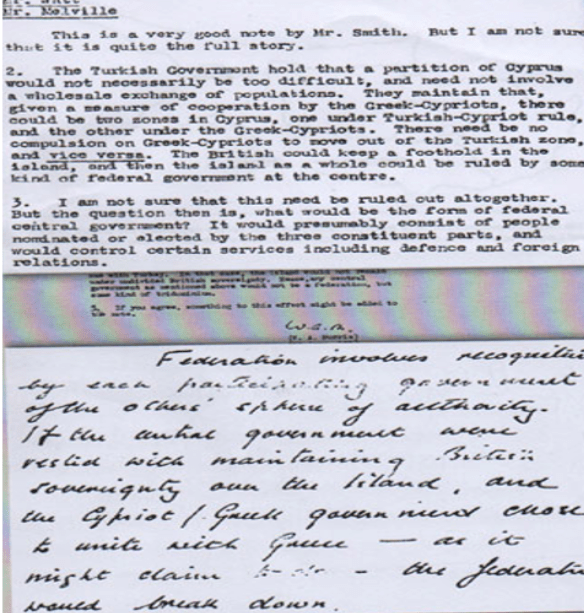 Mr. Melville
This is a very good note by Mr. Smith. But I am not sure
that it is quite the full story.
2. The Turkish Government hold that a partition of Cyprus
would not necessarily be too difficult, and need not involve
a wholesale exchange of populations. They maintain that,
given a measure of cooperation by the Greek-Cypriots, there
could be two zones in Cyprus, one under Turkish-Cypriot rule,
and the other under the Greek-Cypriots. There need be no
compulsion on Greek-Cypriots to move out of the Turkish zone,
and vice versa. The British could keep a foothold in the
island, and then the island as a whole could be ruled by some
kind of federal government at the centre.
3. I am not sure that this need be ruled out altogether.
But the question then is, what would be the form of federal
central government? It would presumably consist of people
nominated or elected by the three constituent parts, and
would control certain services including defence and foreign
relations.
with Turkey. In that case, the island would not remain
under undivided British sovereignty. Hence, any central
government as mentioned above would not be a federation, but
some kind of tridominium.
5. If you agree, something to this effect might be added to
the note.
Federation involves recognition
by each participating government
of the others' sphere of authority.
If the central government were
vested with maintaining British
sovereignty over the Island, and
the Cypriot/Greek government chose
to unite with Greece — as it
might claim to do – the federation
would break down.